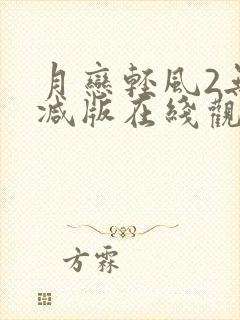 月戀輕風2無
減版在綫觀
方霖